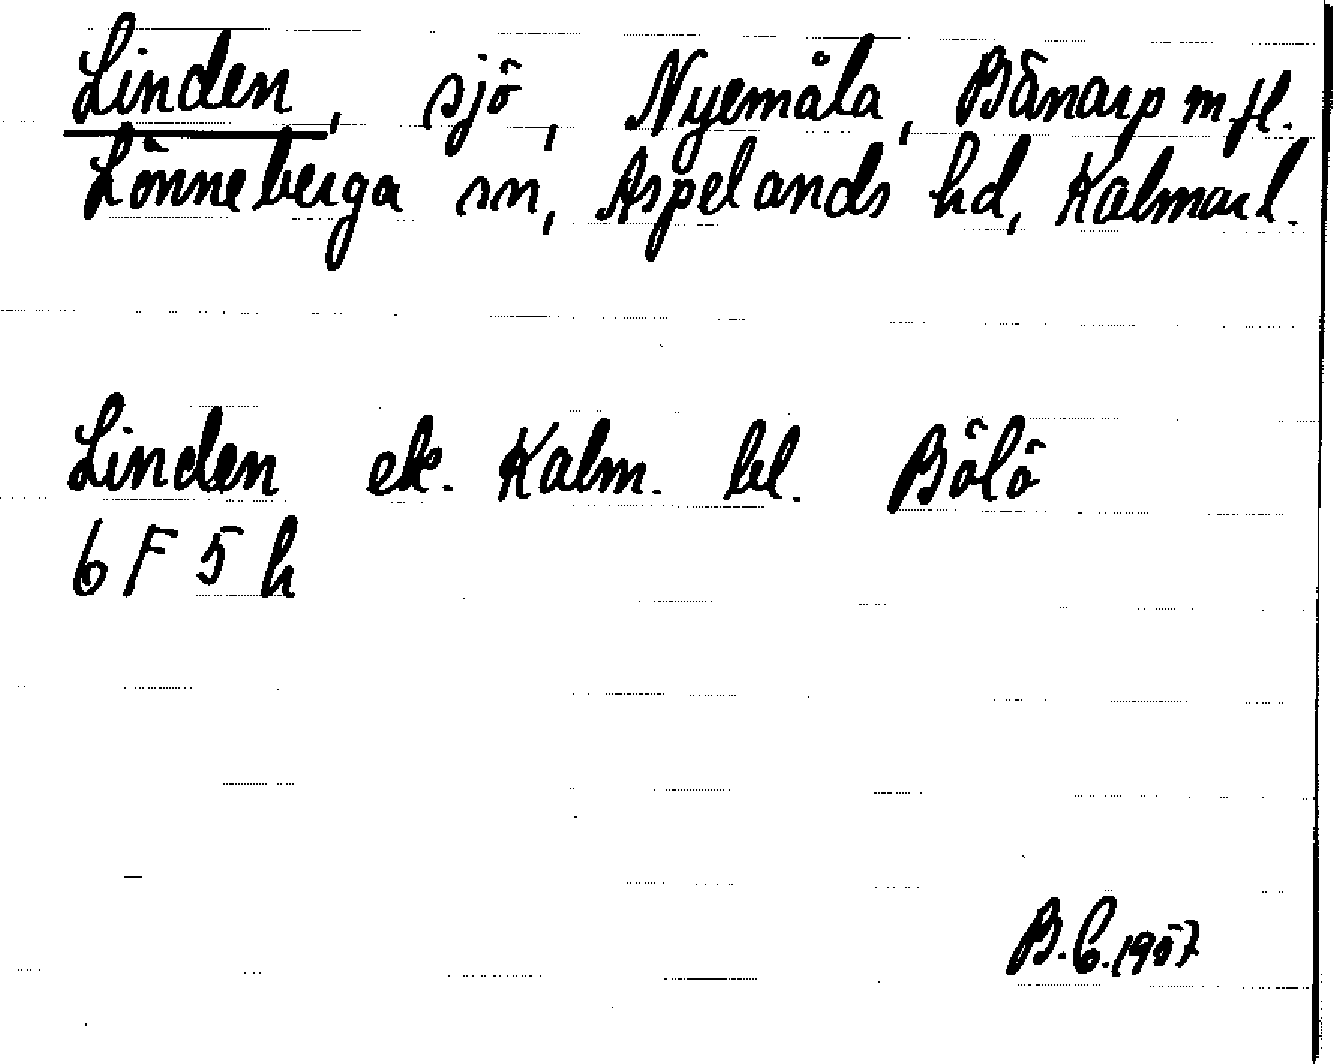 Linden, sjö, Nyemåla, Bånarp m fl.
Lönneberga sn, Aspelands hd, Kalmar l.
Linden ek. Kalm. bl. Bölö
6 F 5 h
B.C. 1957